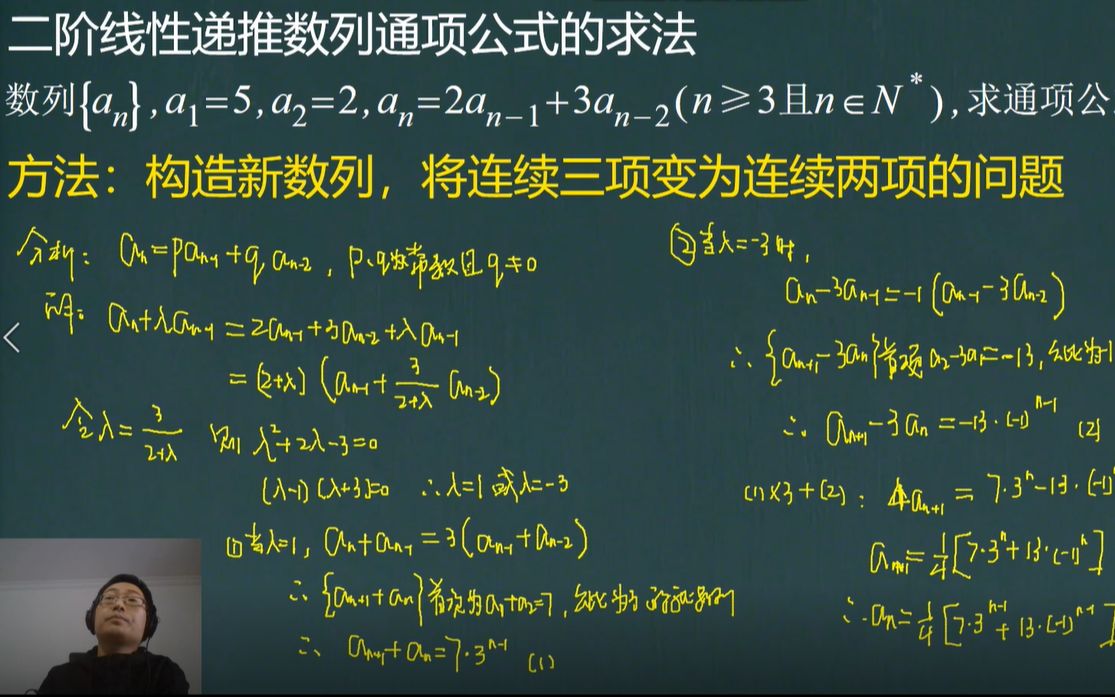 二阶线性递推数列通项公式的求法
数列{aₙ},a₁=5,a₂=2,aₙ=2aₙ₋₁+3aₙ₋₂(n≥3且n∈N*),求通项公
方法：构造新数列，将连续三项变为连续两项的问题
分析：aₙ=paₙ₋₁+qaₙ₋₂，p、q为常数且q≠0
解：aₙ+λaₙ₋₁=2aₙ₋₁+3aₙ₋₂+λaₙ₋₁
=(2+λ)(aₙ₋₁+3/(2+λ) aₙ₋₂)
令λ=3/(2+λ) 则λ²+2λ-3=0
(λ-1)(λ+3)=0 ∴λ=1或λ=-3
①当λ=1，aₙ+aₙ₋₁=3(aₙ₋₁+aₙ₋₂)
∴{aₙ₊₁+aₙ}首项为a₁+a₂=7，公比为3的等比数列
∴aₙ₊₁+aₙ=7·3ⁿ⁻¹ (1)
②当λ=-3时，
aₙ-3aₙ₋₁=-1(aₙ₋₁-3aₙ₋₂)
∴{aₙ₊₁-3aₙ}首项a₂-3a₁=-13,公比为-1
∴aₙ₊₁-3aₙ=-13·(-1)ⁿ⁻¹ (2)
(1)×3+(2)：4aₙ₊₁=7·3ⁿ-13·(-1)
aₙ₊₁=1/4[7·3ⁿ+13·(-1)ⁿ]
∴aₙ=1/4[7·3ⁿ⁻¹+13·(-1)ⁿ⁻¹]